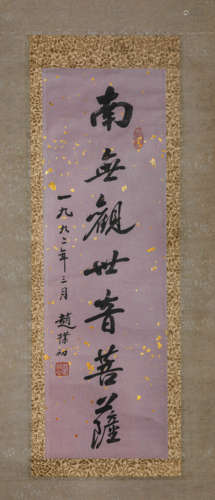 南無觀世音菩薩
一九九二年三月 趙樸初